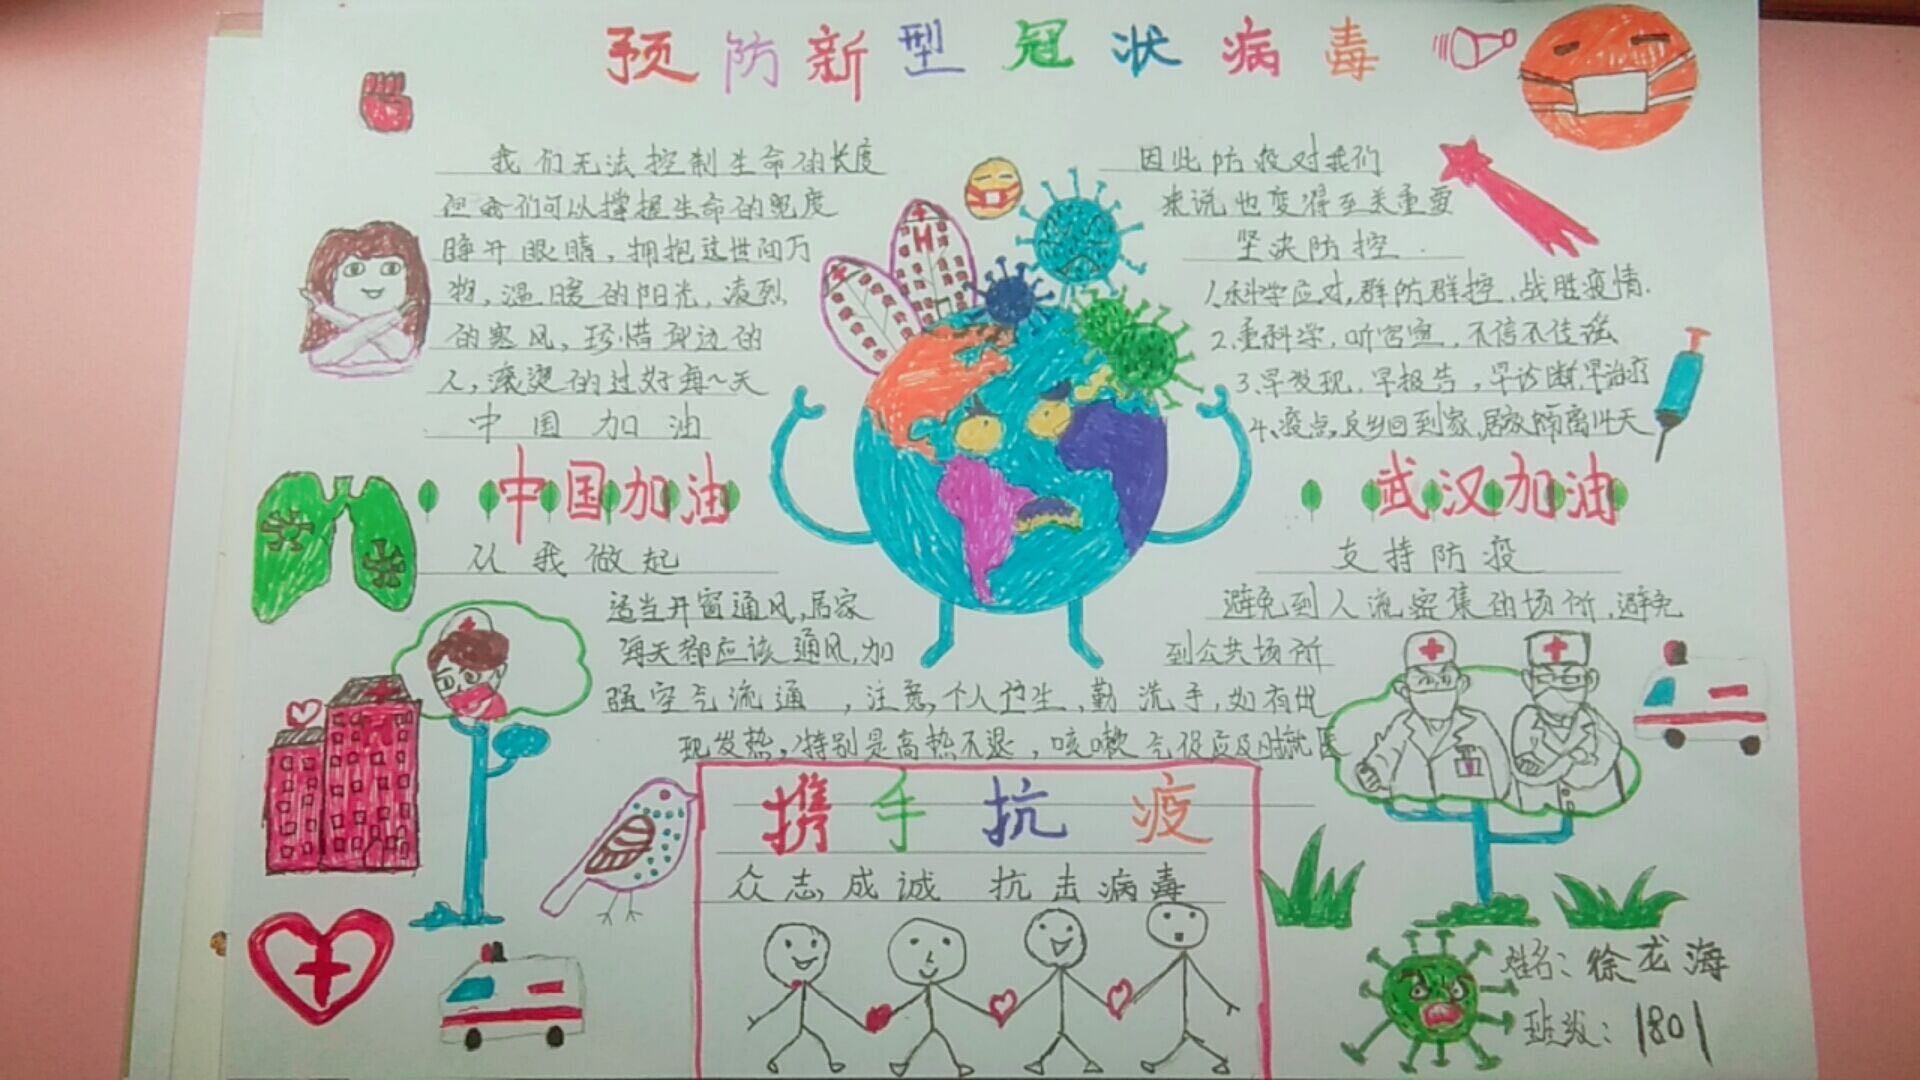 预防新型冠状病毒
我们无法控制生命的长度
但我们可以掌握生命的宽度
睁开眼睛，拥抱这世间万
物，温暖的阳光，凛烈
的寒风，珍惜身边的
人，滚烫的过好每一天
中国加油
中国加油
从我做起
适当开窗通风，居家
每天都应该通风，加
强空气流通，注意个人卫生，勤洗手，如有出
现发热，特别是高热不退，咳嗽气促应及时就医
因此防疫对我们
来说也变得至关重要
坚决防控.
1.科学应对，群防群控，战胜疫情.
2.重科学，听官宣，不信不传谣
3.早发现，早报告，早诊断，早治疗
4、疫点，返乡回到家，居家隔离14天
武汉加油
支持防疫
避免到人流密集的场所，避免
到公共场所
携手抗疫
众志成诚 抗击病毒
H
姓名：徐龙海
班级：1801